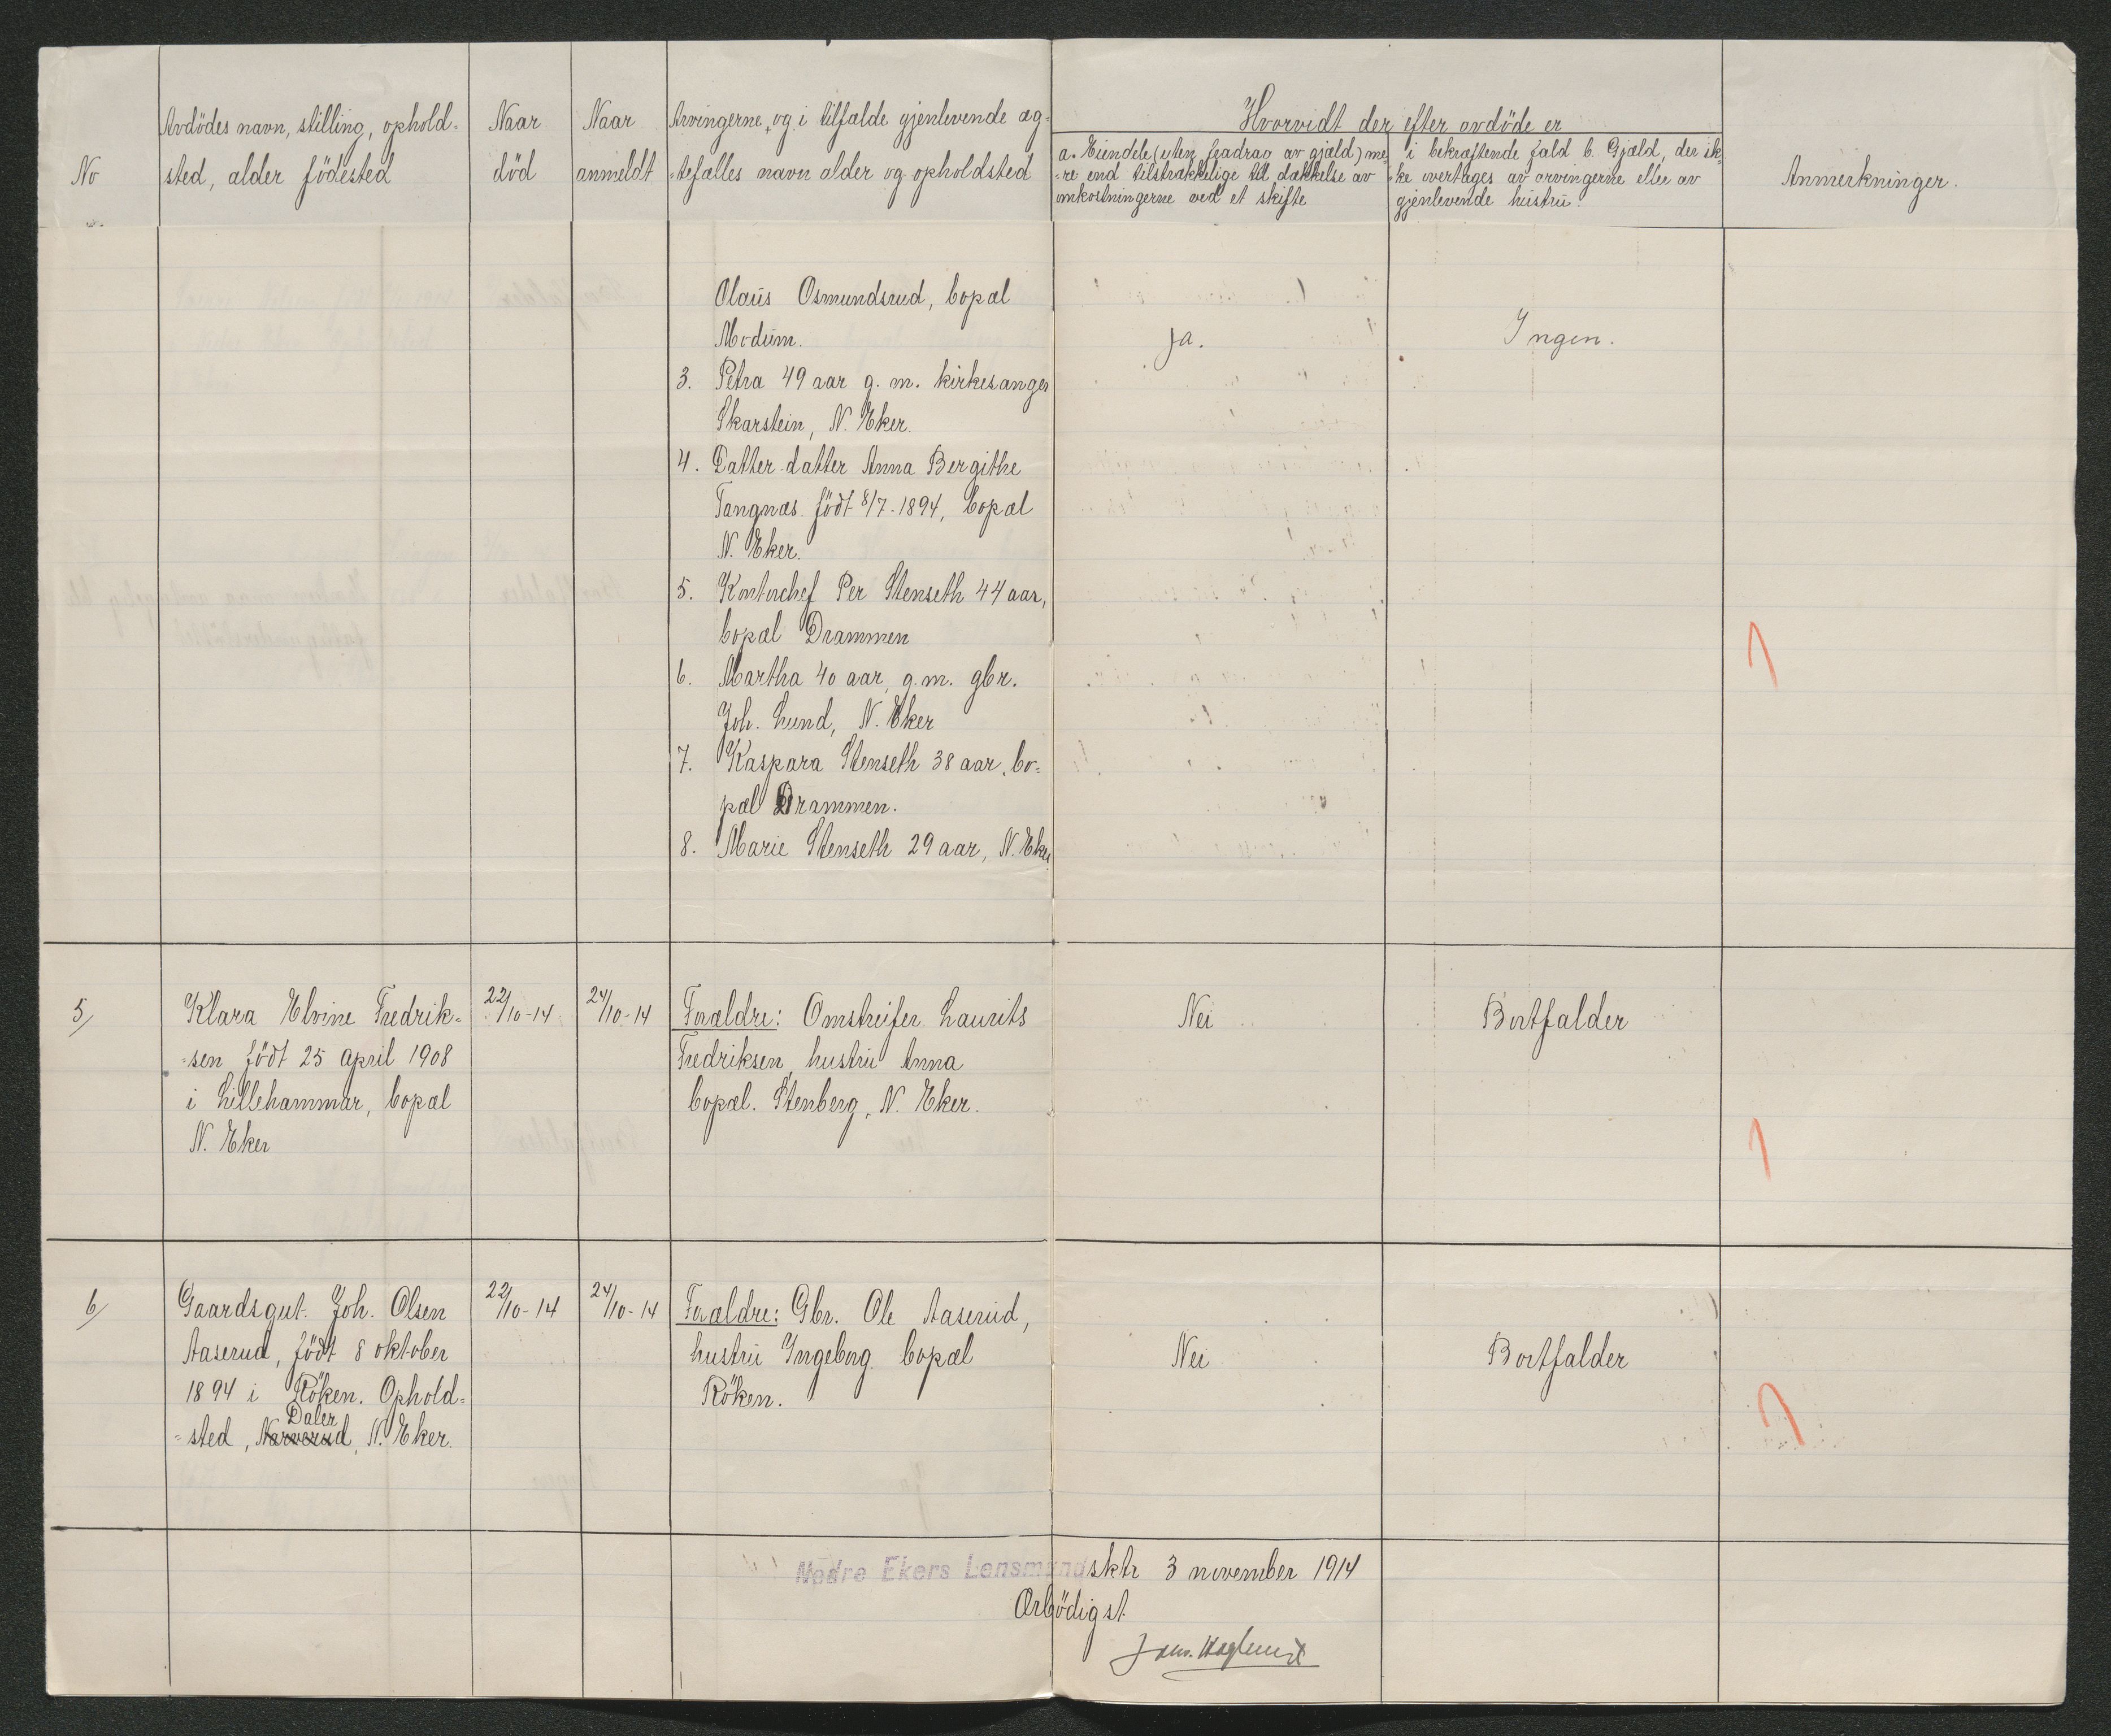 No
Avdödes navn, stilling, ophold-
sted, alder födested
Naar
död
Naar
anmeldt
Arvingerne, og i tilfælde gjenlevende æg-
-tefælles navn alder og opholdsted
Hvorvidt der efter avdöde er
a. Eiendele (uten fradrag av gjæld) me-
-re end tilstrækkelige til dækkelse av
omkostningerne ved et skifte
i bekræftende fald b. Gjæld, der ik-
-ke overtages av arvingerne eller av
gjenlevende hustru.
Anmerkninger.
Olaus Osmundsrud, bopæl
Modum.
ja.
Ingen.
3. Petra 49 aar g. m. kirkesanger
Skarstein, N. Eker.
4. Datter-datter Anna Bergithe
Tangnæs födt 8/7-1894, bopæl
N. Eker.
5. Kontorchef Per Stenseth 44 aar,
bopæl Drammen
6. Martha 40 aar, g.m. gbr.
Joh. Lund, N. Eker
7. Kaspara Stenseth 38 aar, bo-
pæl Drammen.
8. Marie Stenseth 29 aar, N. Eker
5/
Klara Elvine Fredrik-
-sen födt 25 april 1908
i Lillehammer, bopæl
N. Eker
22/10-14
24/10-14
Forældre: Omstreifer Laurits
Fredriksen, hustru Anna
bopæl. Stenberg, N. Eker.
Nei
Bortfalder
6/
Gaardsgut. Joh. Olsen
Aaserud, födt 8 oktober
1894 i Röken. Ophold-
Daler
-sted, Narverud, N. Eker.
22/10-14
24/10-14
Forældre: Gbr. Ole Aaserud,
hustru Ingeborg bopæl
Röken.
Nei
Bortfalder
Nedre Ekers Lensmandsktr 3 november 1914
Ærbödigst